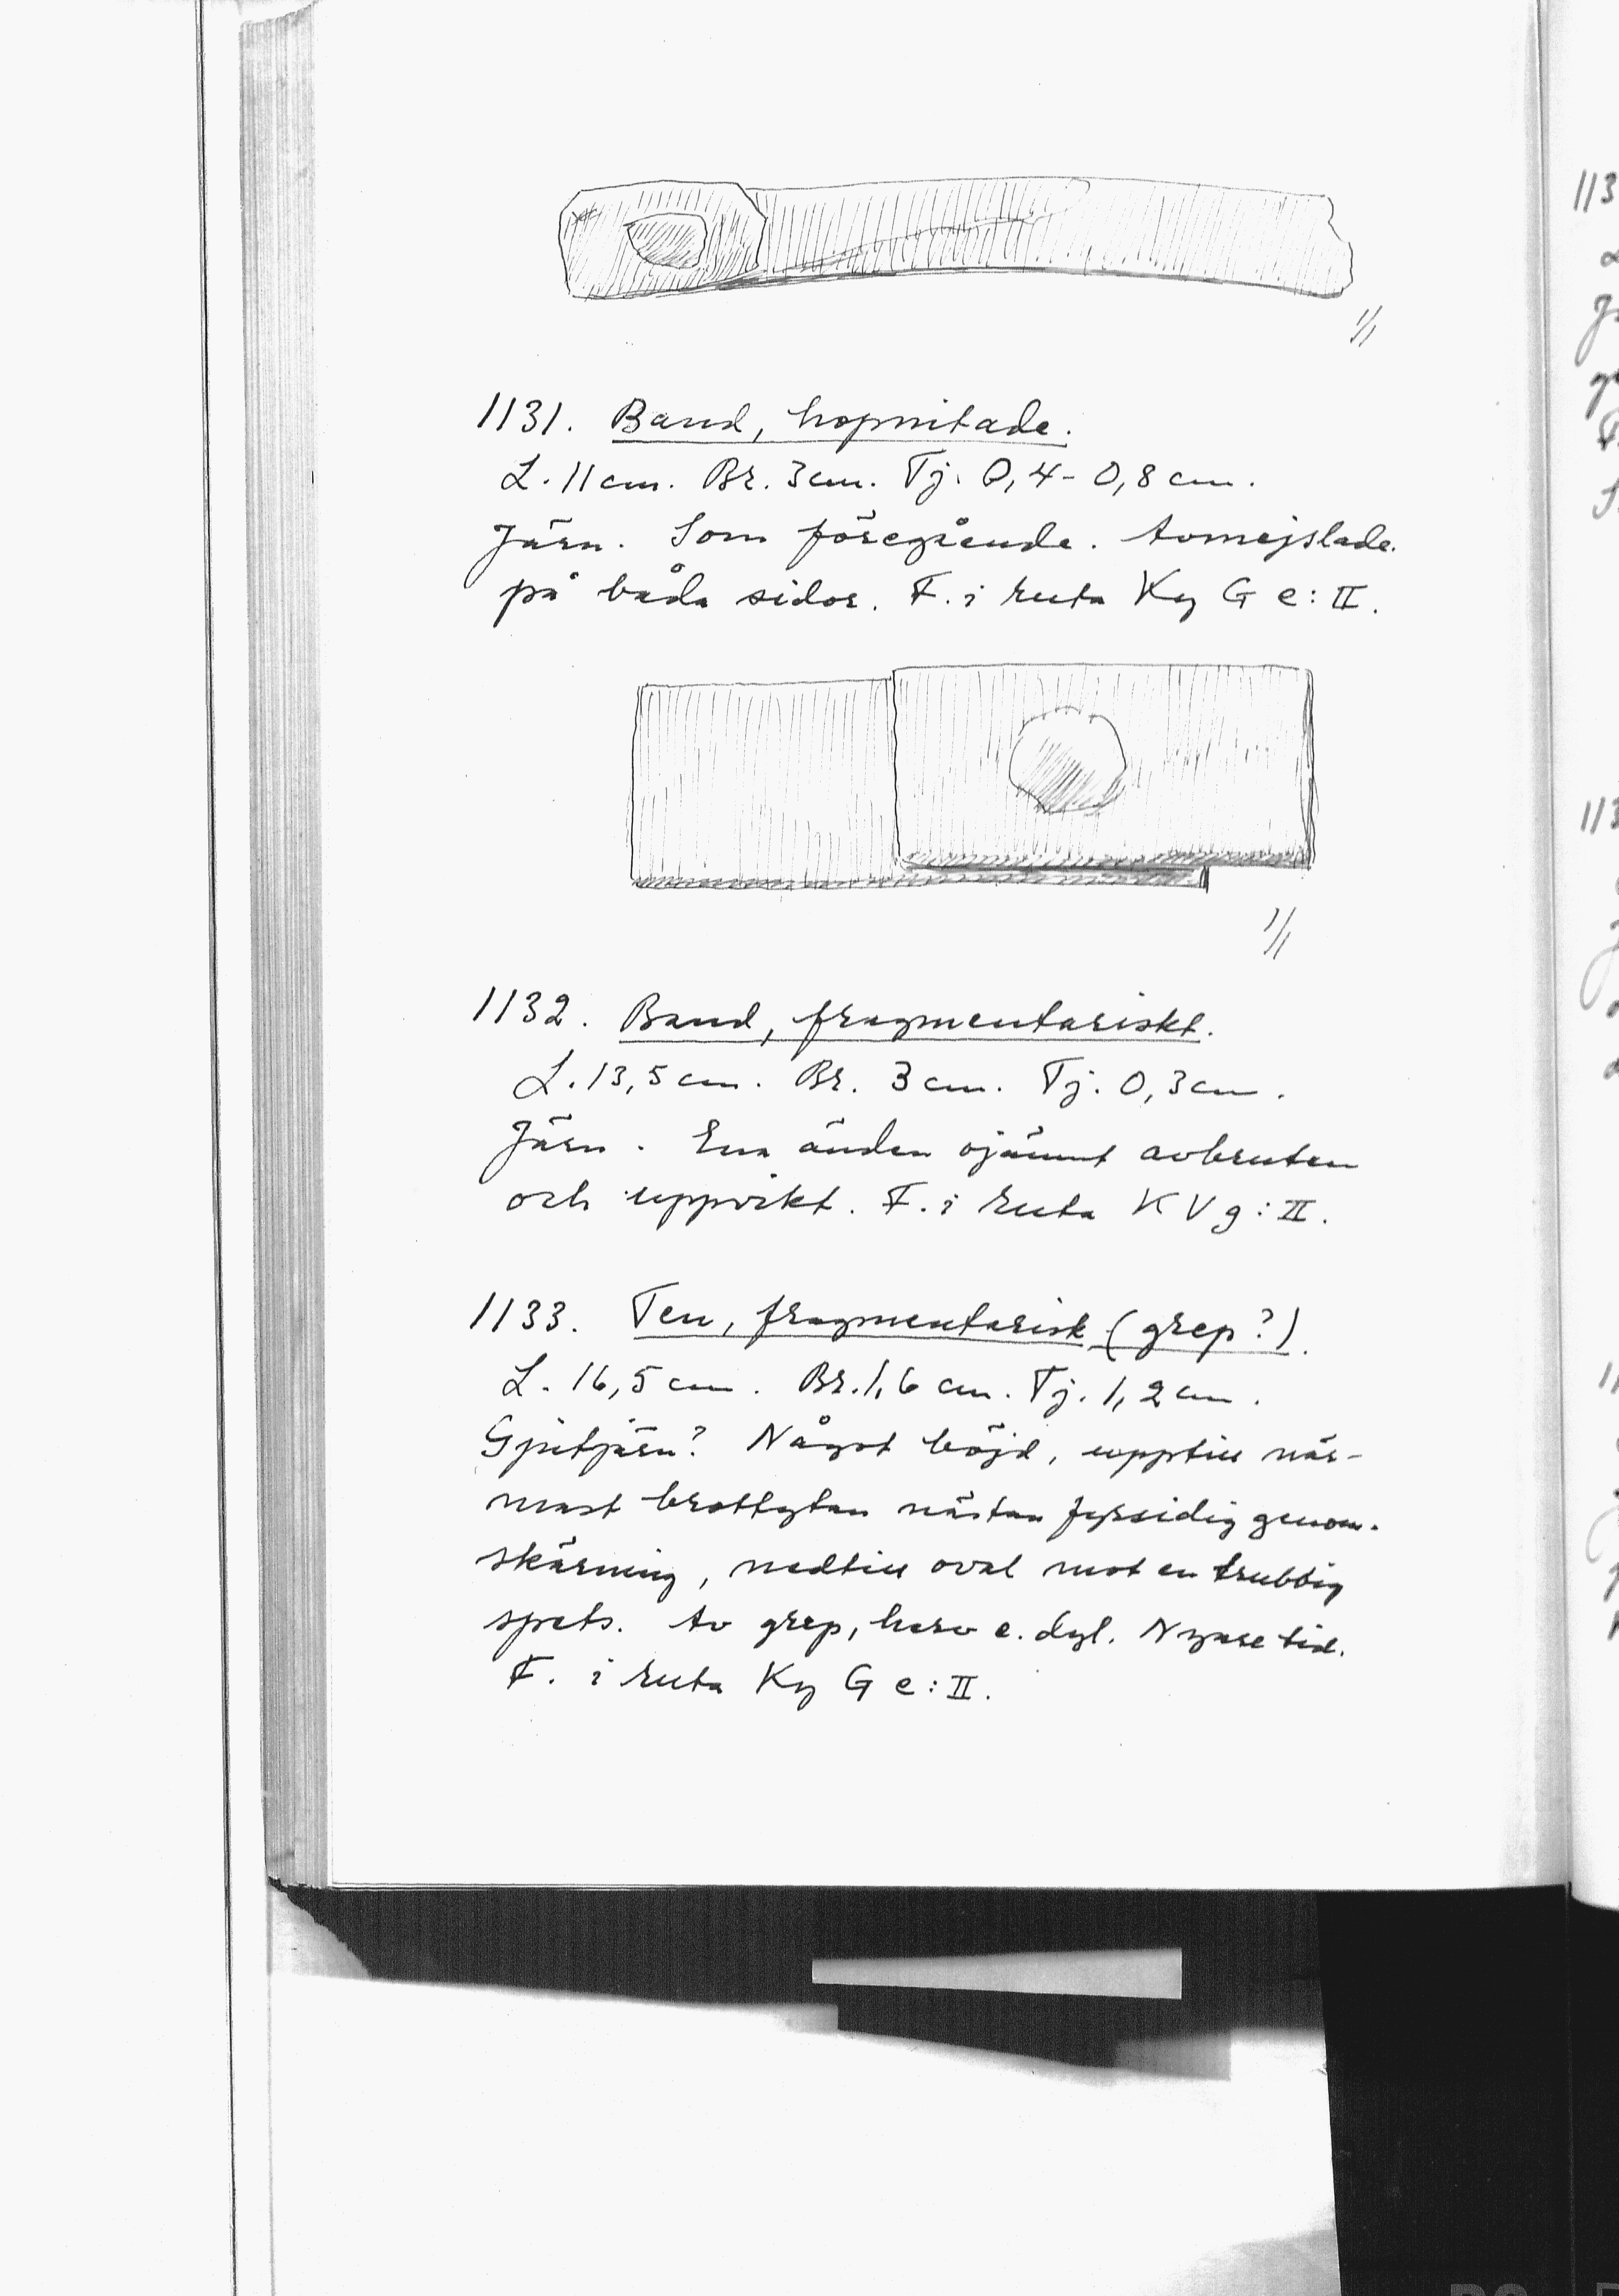 1/1
1131. Band, hopnitade.
L. 11 cm. Br. 3 cm. Tj. 0,4-0,8 cm.
Järn. Som föregående. Avmejslade.
på båda sidor. F. i ruta Ky G e:II.
1/1
1132. Band, fragmentariskt.
L. 13,5 cm. Br. 3 cm. Tj. 0,3 cm.
Järn. Ena änden ojämnt avbruten
och uppvikt. F. i ruta K V g:II.
1133. Ten, fragmentarisk (grep?).
L. 16,5 cm. Br. 1,6 cm. Tj. 1,2 cm.
Gjutjärn? Något böjd, upptill när-
mast brottytan nästan fyrsidig genom-
skärning, nedtill oval mot en trubbig
spets. Av grep, harv e. dyl. Nyare tid.
F. i ruta Ky G e:II.
113
113